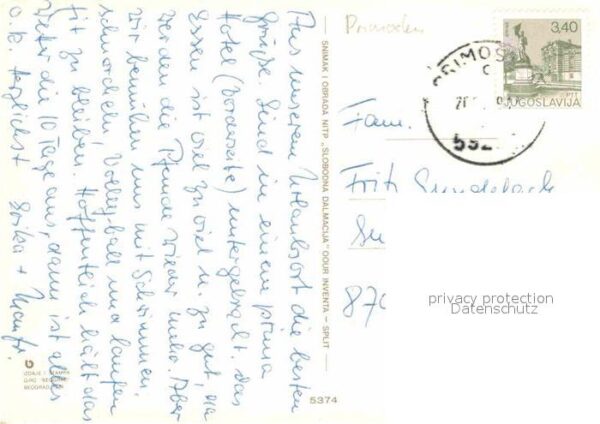 Aus unserem Urlaubsort die besten
Grüße. Sind in einem prima
Hotel (Vorderseite) untergebracht. Das
Essen ist viel zu viel u. zu gut, da
werden die Pfunde wieder mehr. Aber
wir bemühen uns mit Schwimmen,
schnorcheln, Volleyball und laufen
fit zu bleiben. Hoffentlich hält das
Wetter die 10 Tage aus, dann ist alles
o.k. Herzlichst Erika + Manfr.
SNIMAK I OBRADA NITP „SLOBODNA DALMACIJA" OOUR INVENTA – SPLIT
IZDAJE I ŠTAMPA
BEOGRAD
5374
Primosten
3,40
JUGOSLAVIJA
PRIMOŠ
Fam.
Fritz
870
privacy protection
Datenschutz